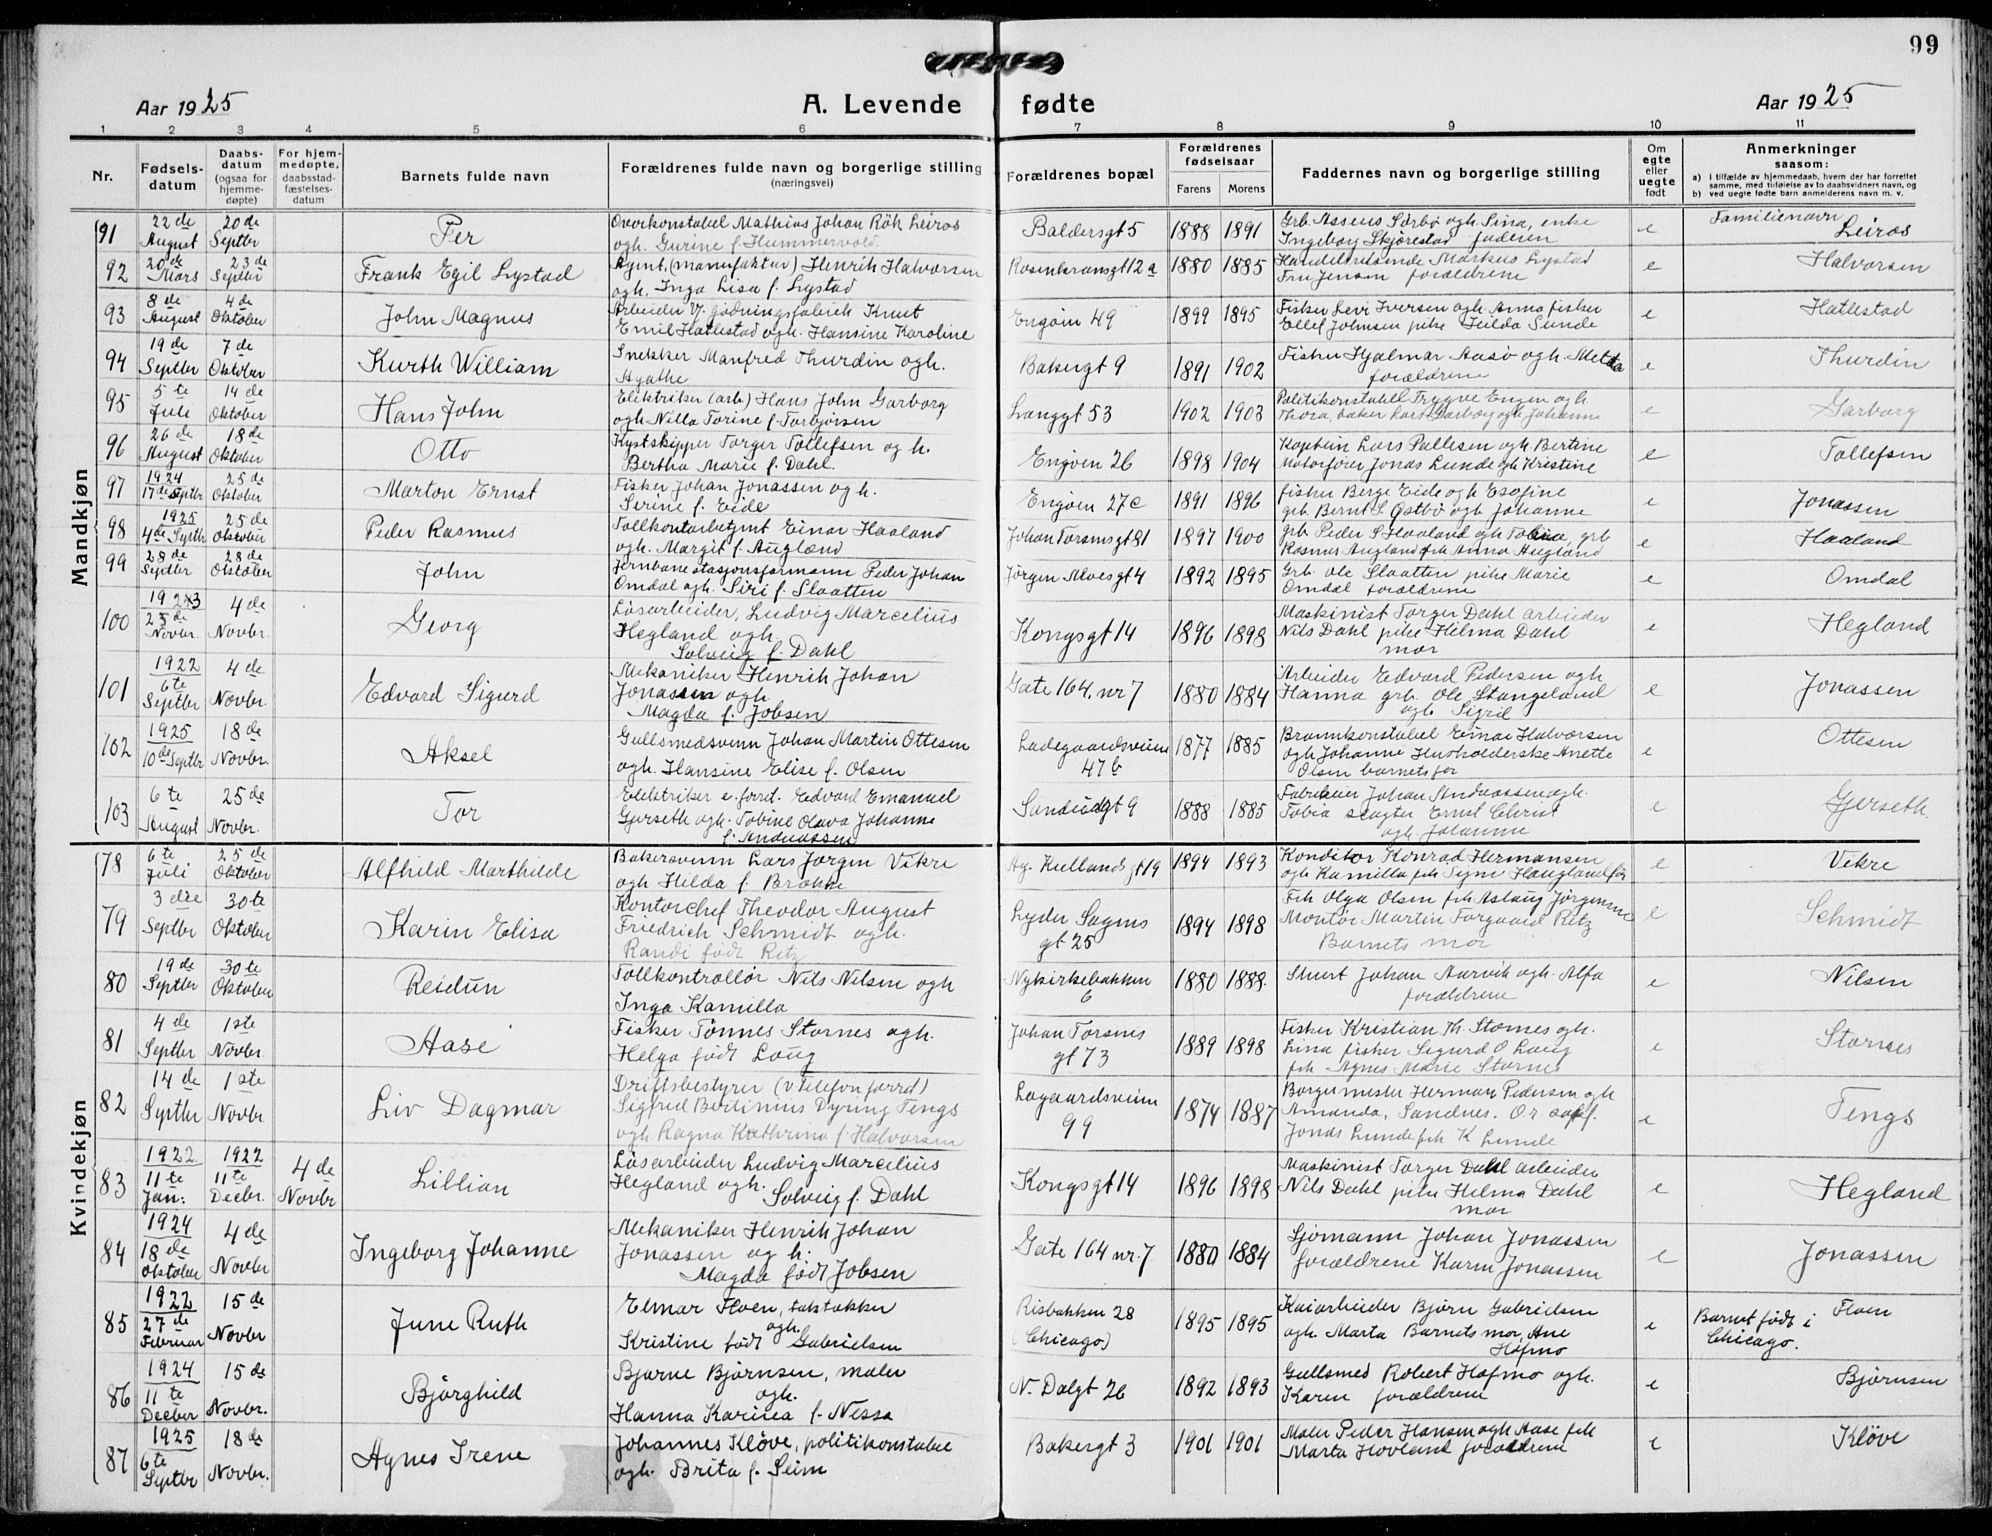 99
Aar 1925 A. Levende fødte Aar 1925
1 2 3 4 5 6 7 8 9 10 11
Nr. Fødsels-datum Daabs-datum (ogsaa for hjemme-døpte) For hjem-medøpte, daabsstad-fæstelses-datum Barnets fulde navn Forældrenes fulde navn og borgerlige stilling (næringsvei) Forældrenes bopæl Forældrenes fødselsaar Farens Morens Faddernes navn og borgerlige stilling Om egte eller uegte født Anmerkninger saasom:
a) I tilfælde av hjemmedaab, hvem der har forrettet samme, med tilføielse av to daabsvidners navn, og
b) ved uegte fødte barn anmelderens navn m. v.
Mandkjøn
91 22de August 20de Septbr Per Overkonstabel Mathias Johan Rök Leiros ogh. Gurine f. Hummervold. Baldersgt 5 1888 1891 Grb. Assens Sørbø ogh. Sina, enke Ingeborg Skjørestad faderen e Familienavn Leiros
92 20de Mars 23de Septbr Frank Egil Lystad Agent, (manufaktur) Henrik Halvorsen ogh. Inga Lisa f. Lystad Rosenkransgt 12a 1880 1885 Handelsreisende Markus Lystad Fru Jensen forældrene e Halvorsen
93 8de August 4de Oktober John Magnus Arbeider v/ gødningsfabrik Knut Emil Hatlestad ogh. Hansine Karoline Engøin 49 1899 1895 Fisker Levi Iversen ogh. Anna fisker Ellef Johnsen pike Hilda Sunde e Hatlestad
94 19de Septbr 7de Oktober Kurth William Snekker Manfred Thurdin ogh. Agathe Bakergt 9 1891 1902 Fisker Hjalmar Aasø ogh. Metta forældrene e Thurdin
95 5te Juli 14de Oktober Hans John Elektriker (arb) Hans John Garborg ogh. Nilla Torine f. Torbjørsen Langgt 53 1902 1903 Politikonstabel Trygve Engen ogh Thora, baker Lars Garborg ogh Johanne e Garborg
96 26de August 18de Oktober Otto Kystskipper Torger Tollefsen og h. Bertha Marie f. Dahl. Engøen 26 1898 1904 Kaptein Lars Pallesen ogh Bertine Motorfører Jonas Lunde ogh Kristine e Tollefsen
97 1924 17de Septbr 25de Oktober Marton Ernst Fisker Johan Jonassen ogh. Serine f. Eide Engøen 27c 1891 1896 fisker Berge Eide ogh Esofine grb Bernt L Østbø ogh Johanne e Jonassen
98 1925 4de Septbr 25de Oktober Peder Rasmus Tollkontorbetjmt Einar Haaland ogh. Margit f. Augland Johan Torsensgt 81 1897 1900 grb Peder S Haaland ogh Tobine, grb Rasmus Augland frk Anna Augland e Haaland
99 28de Septbr 28de Oktober John Jernbanestasjonsformann Peder Johan Omdal ogh. Siri f. Slaatten Jørgen Moesgt 4 1892 1895 Grb Ole Slaatten pike Marie Omdal forældrene e Omdal
100 1923 25de Novbr. 4de Novbr. Georg Løsarbeider, Ludvig Marcelius Hegland ogh. Solveig f. Dahl Kongsgt 14 1896 1898 Maskinist Torger Dahl arbeider Nils Dahl pike Helma Dahl mor e Hegland
101 1922 6te Septbr 4de Novbr. Edvard Sigurd Mekaniker Henrik Johan Jonassen ogh. Magda f. Jobsen Gate 164, nr 7 1880 1884 Arbeider Edvard Pedersen ogh Hanna grb. Ole Stangeland ogh Sigrid e Jonassen
102 1925 10de Septbr 18de Novbr. Aksel Gullsmedsvenn Johan Martin Ottesen ogh. Hansine Elise f. Olsen Ladegaardsveien 47b 1877 1885 Brannkonstabel Einar Halvorsen ogh Johanne Husholderske Anette Olsen barnets far e Ottesen
103 6te August 25de Novbr. Tor Elektriker e. forrt. Edvard Emanuel Gjerseth ogh. Tobine Olava Johanne f. Andreassen Sandeidgt 9 1888 1885 Fabrikeier Johan Andreassen ogh. Tobia slagter Emil Christ ogh. Johanne e Gjerseth
Kvindekjøn
78 6te Juli 25de Oktober Alfhild Marthilde Bakersvenn Lars Jørgen Vikre ogh Hilda f. Brokke Ag. Kiellandsgt 19 1894 1893 Konditor Konrad Hermansen ogh Kamilla frk Signe Haugland far e Vikre
79 3die Septbr 30te Oktober Karin Elisa Kontorchef Theodor August Friedrich Schmidt ogh. Randi født Retz Lyder Sagens gt 25 1894 1898 Frk Olga Olsen frk Aslaug Jørgensen Montør Martin Torgaard Retz Barnets mor e Schmidt
80 19de Septbr 30te Oktober Reidun Tollkontrollør Nils Nilsen ogh Inga Kamilla Nykirkebakken 6 1880 1888. Stuert Johan Aarvik ogh. Alfa forældrene e Nilsen
81 4de Septbr 1ste Novbr. Aase Fisker Tønnes Stornes ogh. Helga født Laug Johan Torsens gt 73 1889 1898 Fisker Kristian Th. Stornes ogh. Lina fisker Sigurd O Laug frk Agnes Marie Stornes e Stornes
82 14de Septbr 1ste Novbr Liv Dagmar Driftsbestyrer (v Telefon forret) Sigfred Bodinius Dyring Tengs ogh. Ragna Kathrina f. Halvorsen Lagaardsveien 99 1874 1887 Borgermester Herman Pedersen ogh Amanda, Sandnes. O.r. sakf. Jonas Lunde frk K Lunde e Tengs
83 1922 11te Jan: 1922 11te Decbr. 4de Novbr Lillian Løsarbeider Ludvig Marcelius Hegland ogh. Solveig f. Dahl Kongsgt 14 1896 1898 Maskinist Torger Dahl arbeider Nils Dahl pike Helma Dahl mor e Hegland
84 1924 18de Oktober 4de Novbr Ingeborg Johanne Mekaniker Henrik Johan Jonassen og h. Magda født Jobsen Gate 164 nr 7 1880 1884 Sjømann Johan Jonassen forældrene Karin Jonassen e Jonassen
85 1922 27de Februar 15de Novbr June Ruth Elmar Floen, taktækker ogh. Kristine født Gabrielsen Risbakken 28 (Chicago) 1895 1895 Kaiarbeider Bjørn Gabrielsen ogh. Marta Barnets mor, Ane Hofmo e Barnet født i Chicago. Floen
86 1924 11te Decbr 15de Novbr. Bjørghild Bjarne Bjørnsen, maler ogh. Hanna Karina f. Nessa N. Dalgt 26 1892 1893 Gullsmed Robert Hofmo ogh. Karen forældrene e Bjørnsen
87 1925 6te Septbr 18de Novbr. Agnes Irene Johannes Kløve, politikonstabel ogh. Brita f. Seim Bakergt 3 1901 1901 Maler Peder Hansen ogh Aase frk Marta Hovland forældrene e Kløve